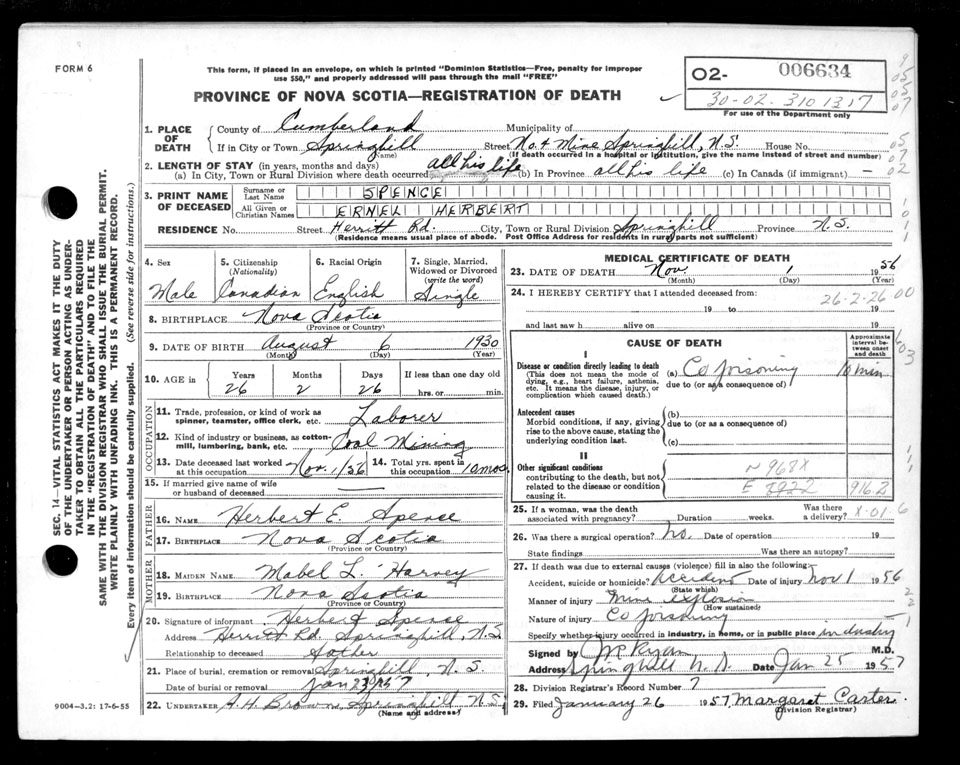 FORM 6
This form, if placed in an envelope, on which is printed "Dominion Statistics—Free, penalty for improper
use $50," and properly addressed will pass through the mail "FREE"
PROVINCE OF NOVA SCOTIA—REGISTRATION OF DEATH
02- 006634
30-02. 3101317
For use of the Department only
1. PLACE OF DEATH
County of Cumberland Municipality of
If in City or Town Springhill Street No. 4 Mine Springhill, N.S. House No.
(Name) (If death occurred in a hospital or institution, give the name instead of street and number)
2. LENGTH OF STAY (in years, months and days)
(a) In City, Town or Rural Division where death occurred all his life (b) In Province all his life (c) In Canada (if immigrant) —
3. PRINT NAME OF DECEASED
Surname or Last Name SPENCE
All Given or Christian Names ERNEL HERBERT
RESIDENCE No. Street Herritt Rd. City, Town or Rural Division Springhill Province N.S.
(Residence means usual place of abode. Post Office Address for residents in rural parts not sufficient)
4. Sex 5. Citizenship (Nationality) 6. Racial Origin 7. Single, Married, Widowed or Divorced (write the word)
Male Canadian English Single
8. BIRTHPLACE Nova Scotia
(Province or Country)
9. DATE OF BIRTH August 6 1930
(Month) (Day) (Year)
10. AGE in Years Months Days If less than one day old
26 2 26 hrs. or min.
OCCUPATION
11. Trade, profession, or kind of work as spinner, teamster, office clerk, etc. Laborer
12. Kind of industry or business, as cotton-mill, lumbering, bank, etc. Coal Mining
13. Date deceased last worked at this occupation Nov. 1/56 14. Total yrs. spent in this occupation 10 mos.
15. If married give name of wife or husband of deceased —
FATHER
16. Name Herbert E. Spence
17. BIRTHPLACE Nova Scotia
(Province or Country)
MOTHER
18. MAIDEN NAME Mabel L. Harvey
19. BIRTHPLACE Nova Scotia
(Province or Country)
20. Signature of informant Herbert Spence
Address Herritt Rd. Springhill, N.S.
Relationship to deceased Father
21. Place of burial, cremation or removal Springhill, N.S.
Date of burial or removal Jan 23
22. UNDERTAKER A.H. Brown, Springhill N.S.
(Name and address)
MEDICAL CERTIFICATE OF DEATH
23. DATE OF DEATH Nov. 1 1956
(Month) (Day) (Year)
24. I HEREBY CERTIFY that I attended deceased from:
26-2-26 00
19 to 19
and last saw h alive on 19
CAUSE OF DEATH
Approximate interval between onset and death
I
Disease or condition directly leading to death (a) Co poisoning 10 min.
(This does not mean the mode of dying, e.g., heart failure, asthenia, etc. It means the disease, injury, or complication which caused death.)
due to (or as a consequence of)
Antecedent causes (b)
Morbid conditions, if any, giving rise to the above cause, stating the underlying condition last.
due to (or as a consequence of)
(c)
II
Other significant conditions
contributing to the death, but not related to the disease or condition causing it.
N 968X
E 916.2
25. If a woman, was the death associated with pregnancy? Duration weeks. Was there a delivery?
X-01.6
26. Was there a surgical operation? No. Date of operation 19
State findings Was there an autopsy?
27. If death was due to external causes (violence) fill in also the following:
Accident, suicide or homicide? Accident Date of injury Nov 1 1956
(State which)
Manner of injury Mine explosion
(How sustained)
Nature of injury Co poisoning
Specify whether injury occurred in industry, in home, or in public place industry
Signed by M.D.
Address Springhill N.S. Date Jan 25 1957
28. Division Registrar's Record Number 7
29. Filed January 26 1957 Margaret Carter.
(Division Registrar)
9004—3.2: 17-6-55
SEC. 14—VITAL STATISTICS ACT MAKES IT THE DUTY
OF THE UNDERTAKER OR PERSON ACTING AS UNDER-
TAKER TO OBTAIN ALL THE PARTICULARS REQUIRED
IN THE "REGISTRATION OF DEATH" AND TO FILE THE
SAME WITH THE DIVISION REGISTRAR WHO SHALL ISSUE THE BURIAL PERMIT.
WRITE PLAINLY WITH UNFADING INK. THIS IS A PERMANENT RECORD.
Every item of information should be carefully supplied. (See reverse side for instructions.)